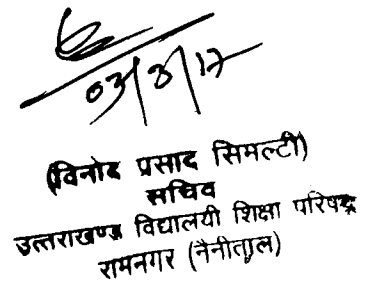 03/8/17
(विनोद प्रसाद सिमल्टी)
सचिव
उत्तराखण्ड विद्यालयी शिक्षा परिषद्
रामनगर (नैनीताल)